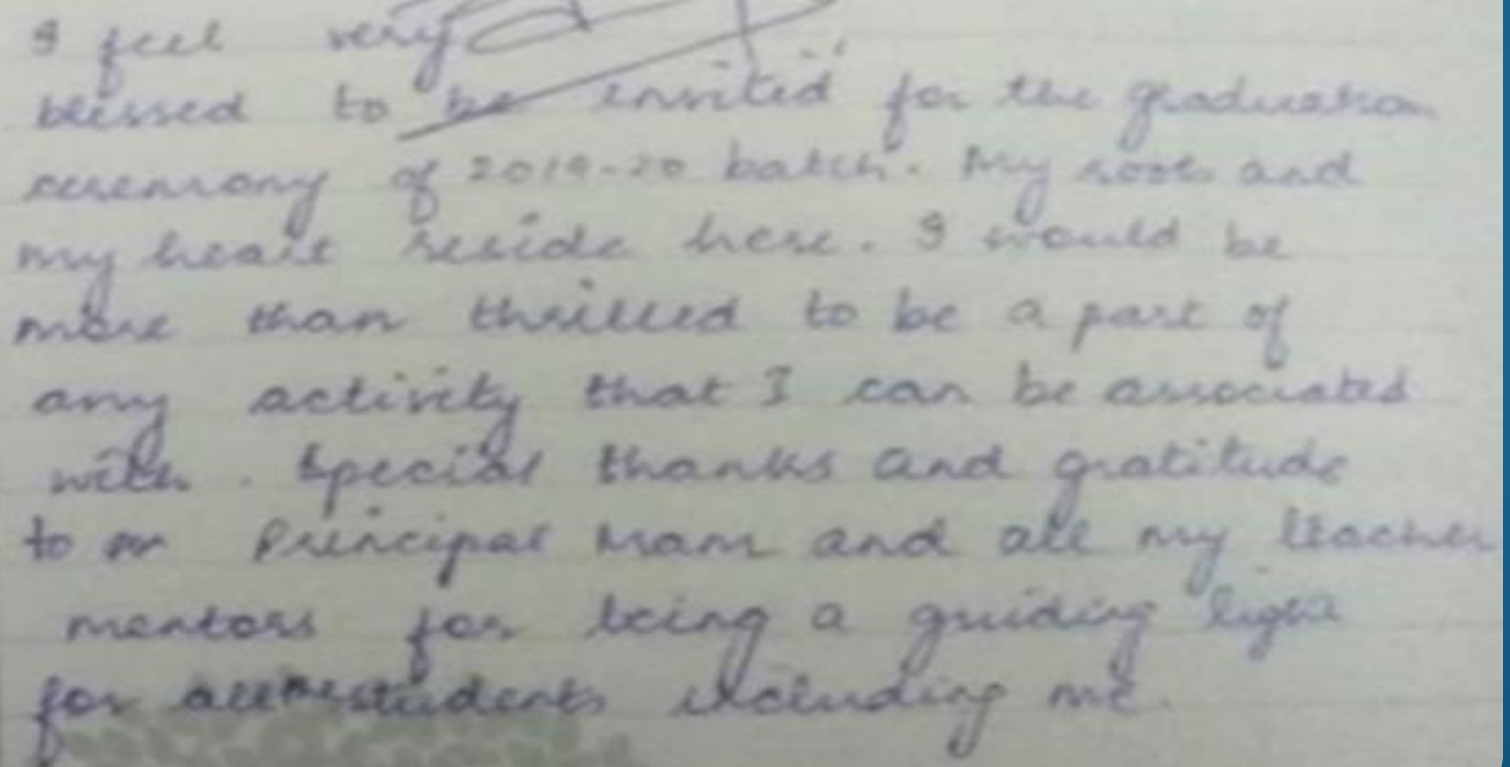 I feel very
blessed to be invited for the graduation
ceremony of 2019-20 batch. My roots and
my heart reside here. I would be
more than thrilled to be a part of
any activity that I can be associated
with. Special thanks and gratitude
to Principal Mam and all my teacher
mentors for being a guiding light
for all students including me.